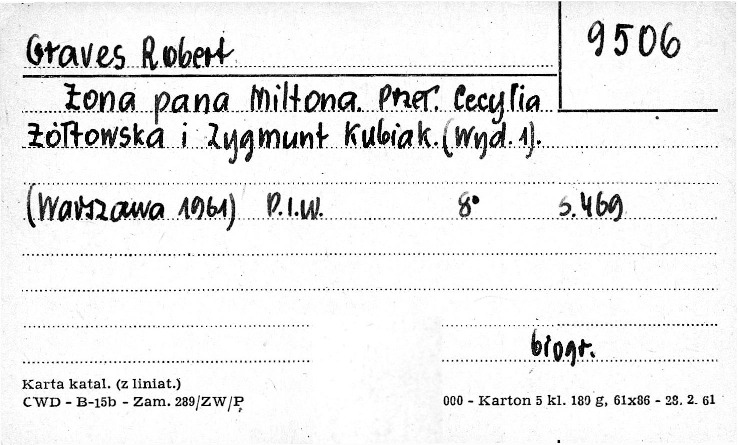 Graves Robert
9506
Żona pana Miltona. Przeł. Cecylia
Żółtowska i Zygmunt Kubiak. (Wyd. 1).
(Warszawa 1961) P.I.W. 8° s. 469
biogr.
Karta katal. (z liniat.)
CWD - B-15b - Zam. 289/ZW/P
000 - Karton 5 kl. 180 g, 61x86 - 28. 2. 61